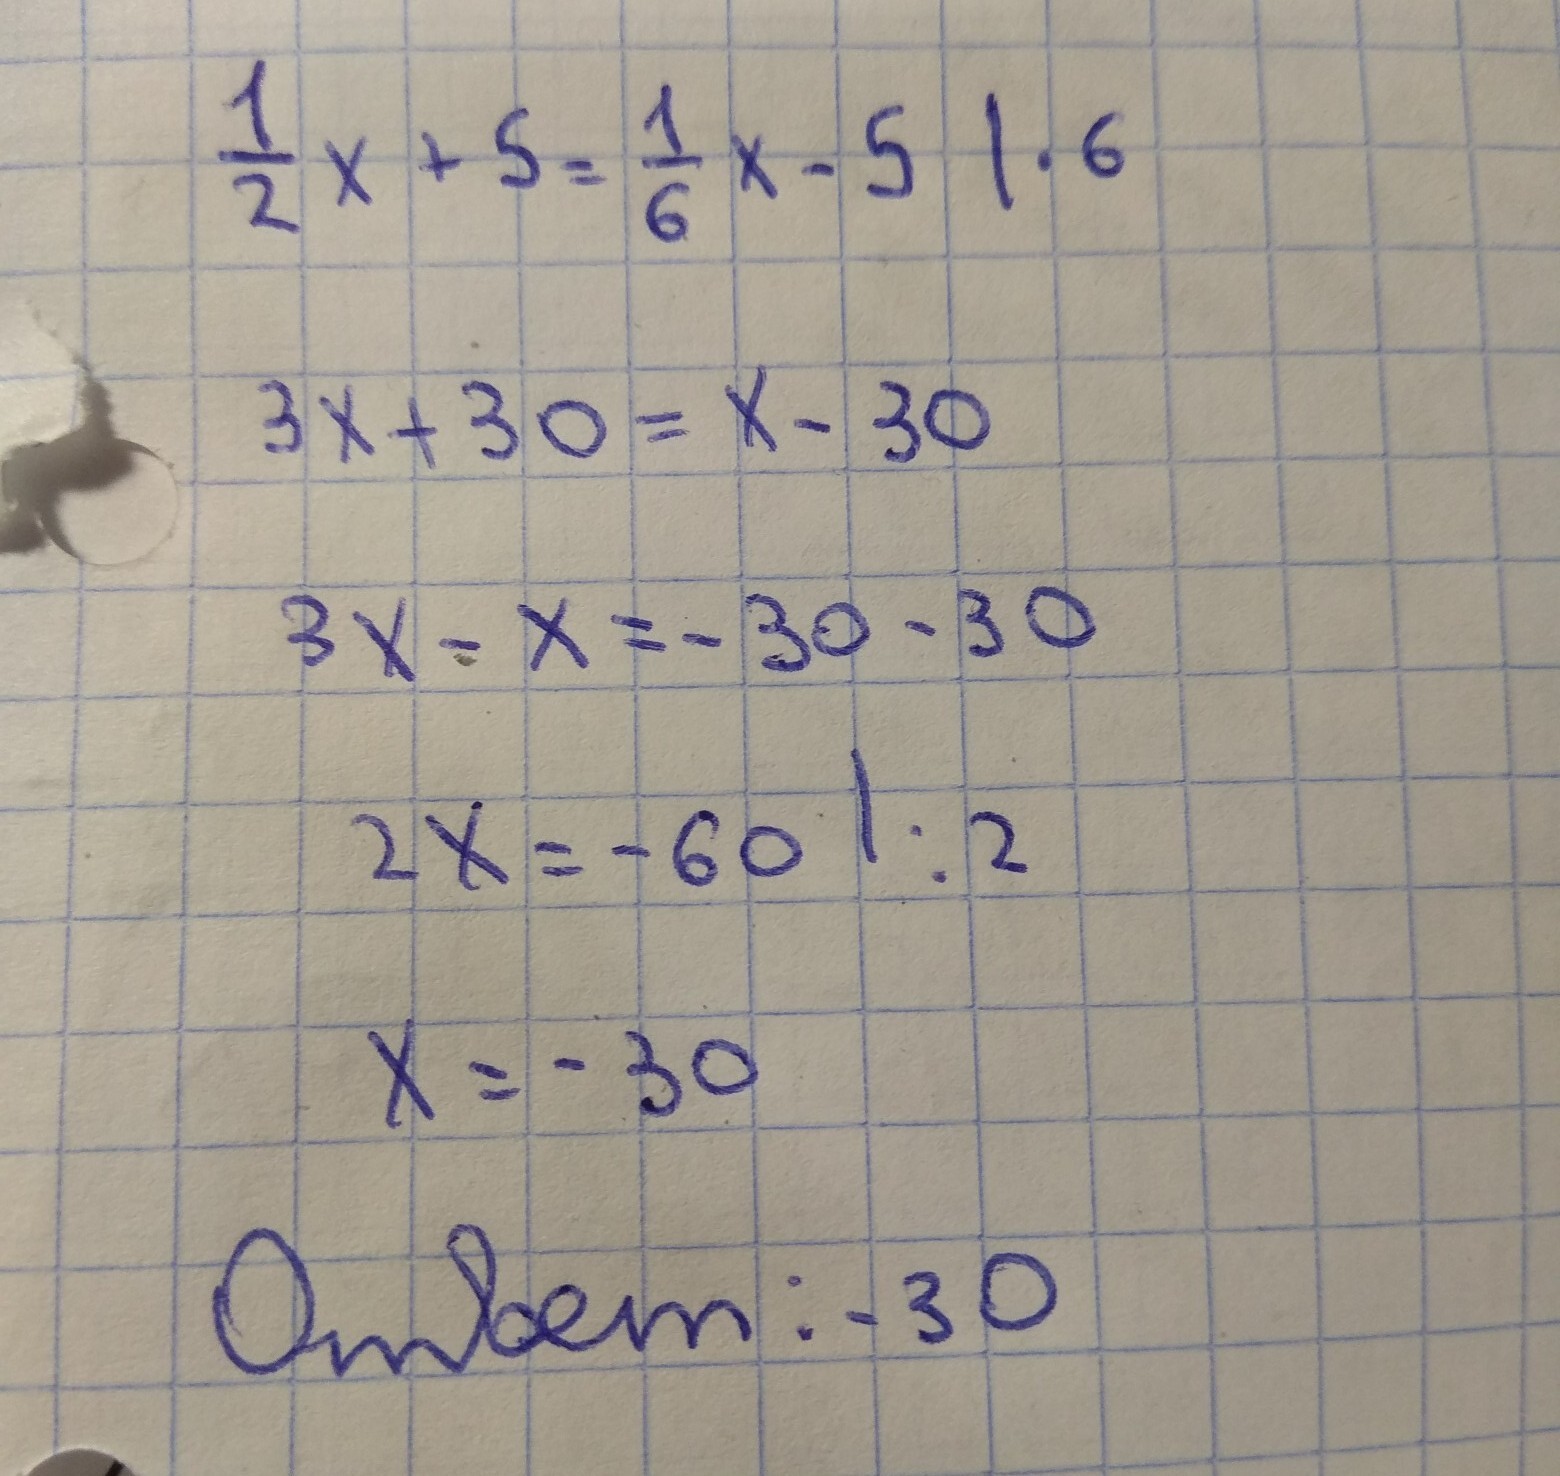 1/2 x + 5 = 1/6 x - 5 | · 6
3x + 30 = x - 30
3x - x = - 30 - 30
2x = - 60 | : 2
x = - 30
Ответ: - 30